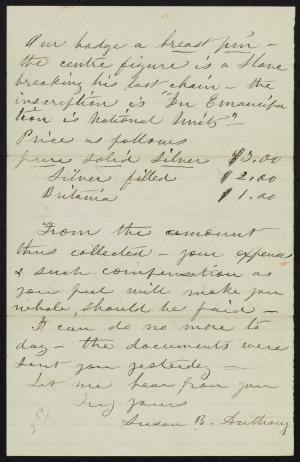 Our badge a breast pin -
the centre figure is a Slave
breaking his last chain - the
inscription is "In Emancipa
tion is National Unity" -
Price as follows
pure solid silver $3.00
Silver filled $2.00
Britania $1.00
From the amount
thus collected - your expenses
& such compensation as
you feel will make you
whole, should be paid -
I can do no more to
day - the documents were
sent you yesterday -
Let me hear from you
Truly yours
Susan B. Anthony